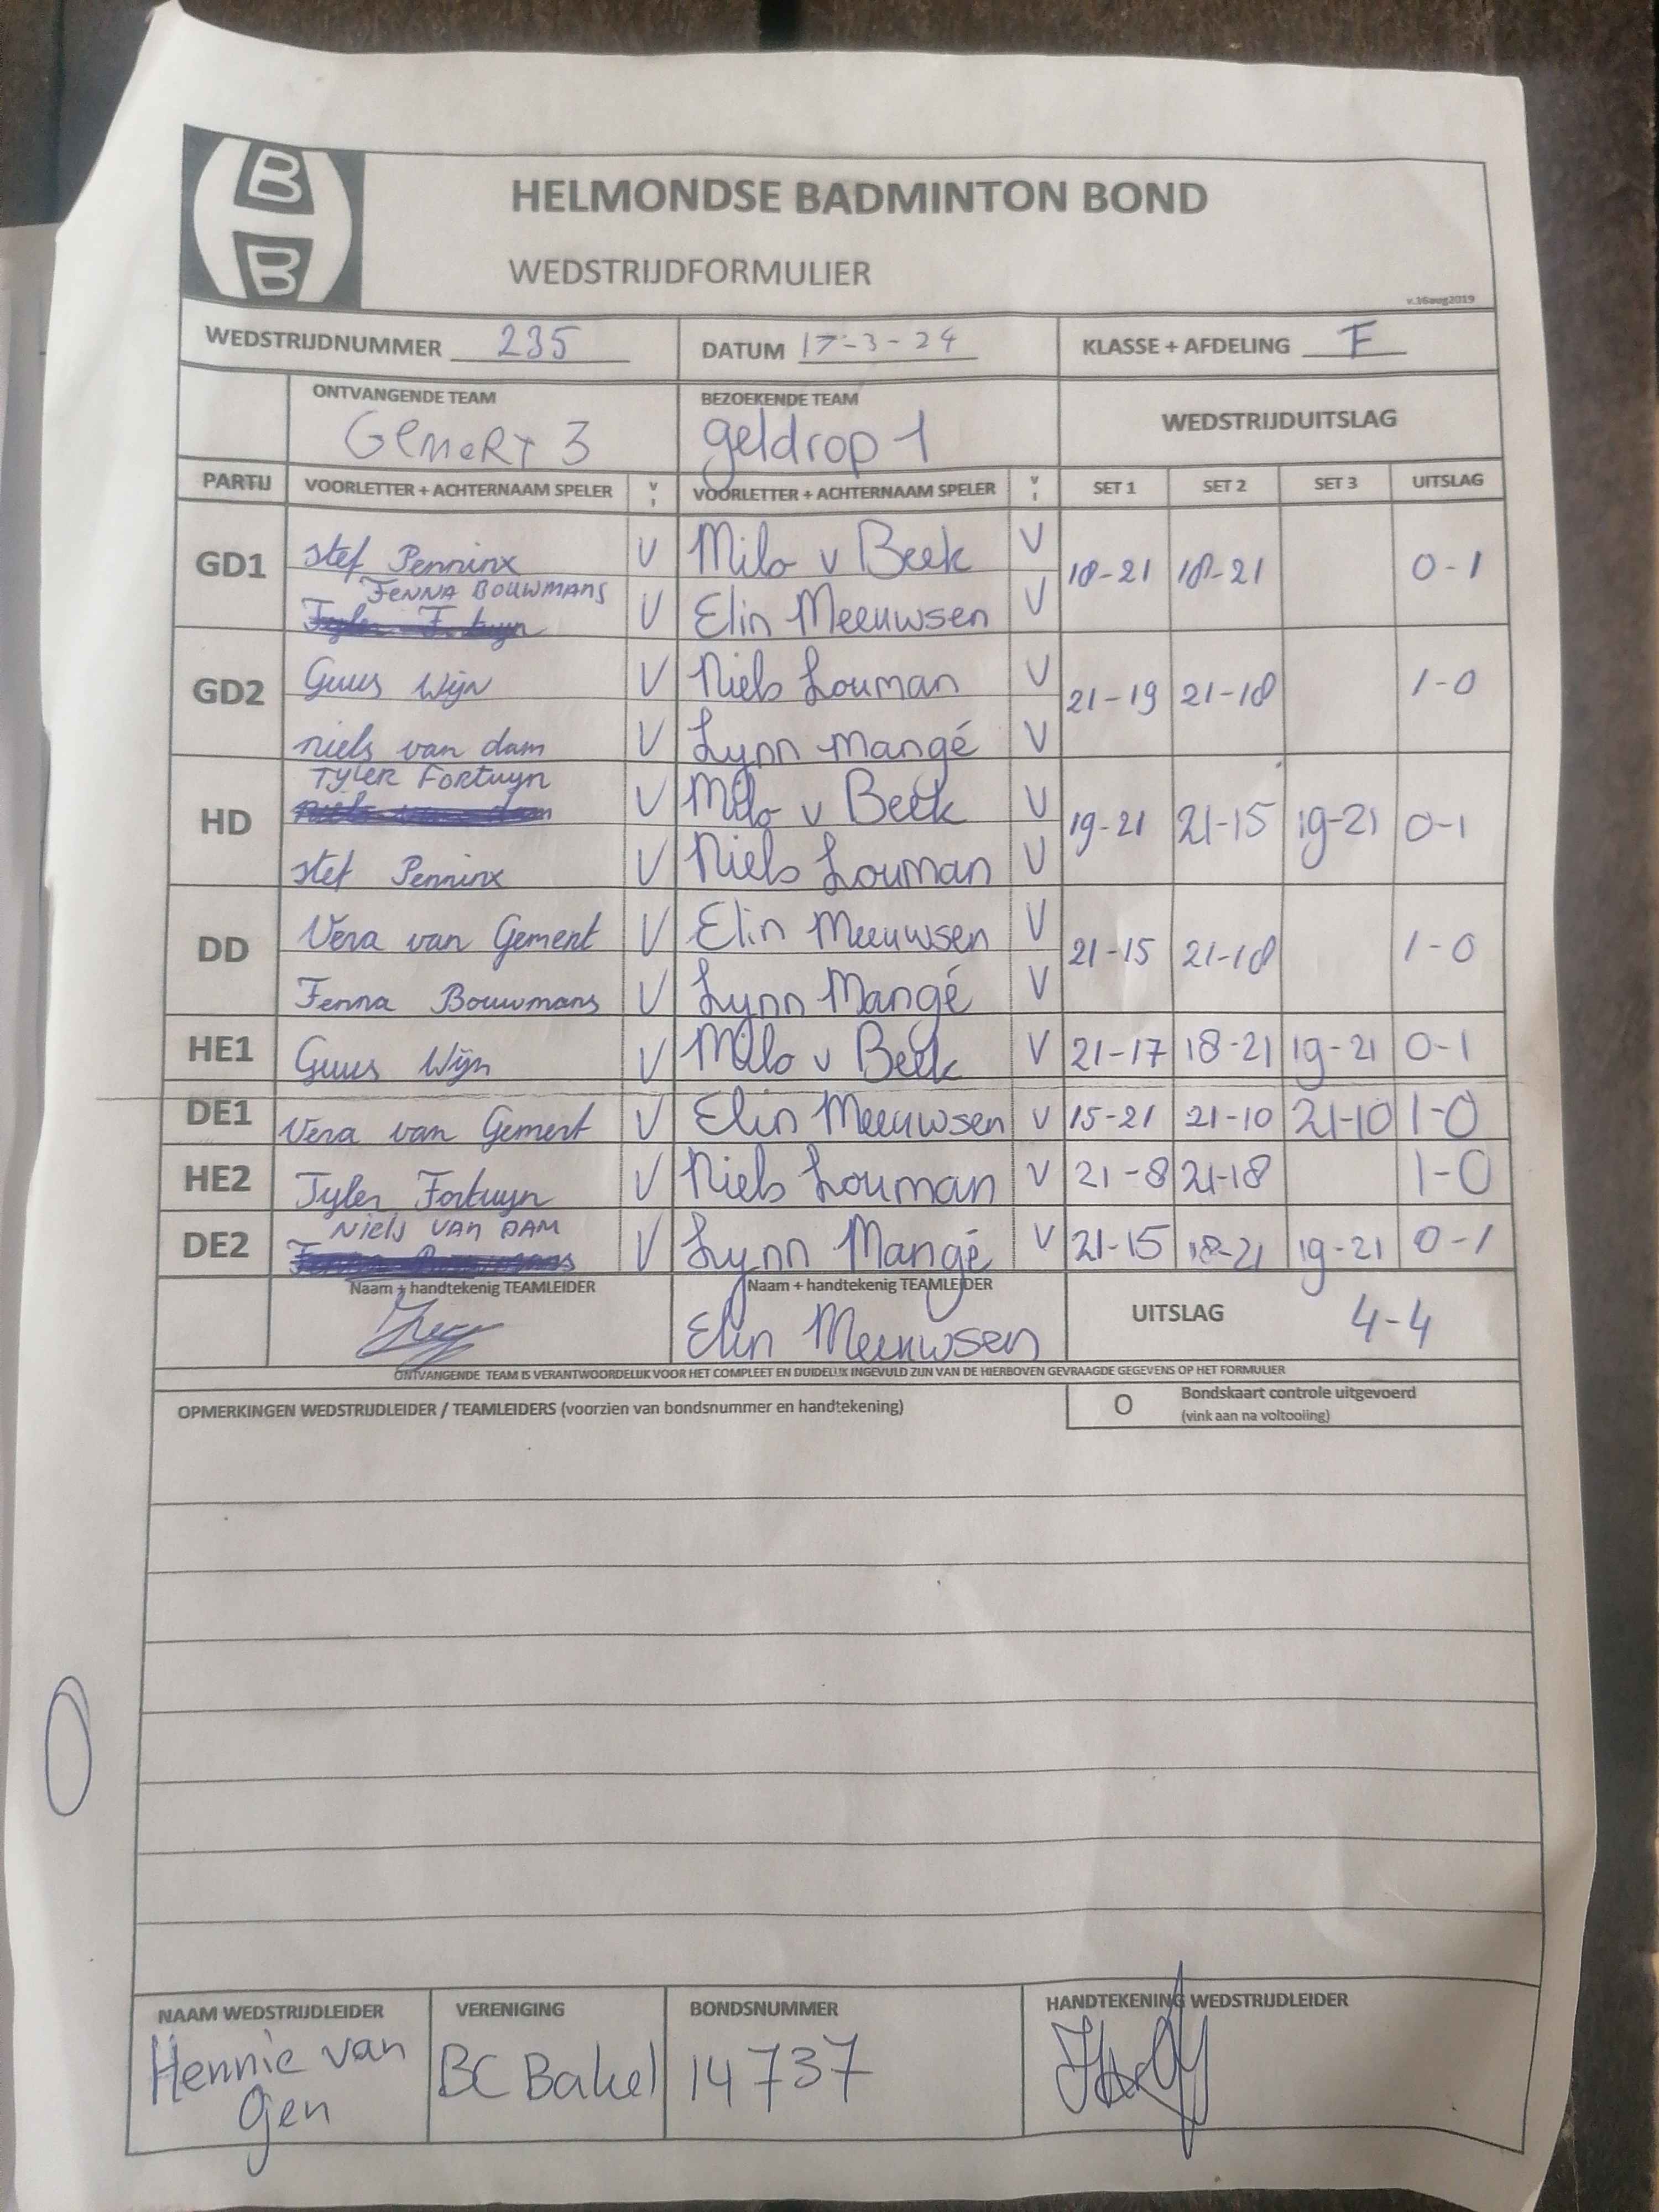 B
B
HELMONDSE BADMINTON BOND
WEDSTRIJDFORMULIER
v.16aug2019
WEDSTRIJDNUMMER 235 DATUM 17-3-24 KLASSE + AFDELING F
ONTVANGENDE TEAM BEZOEKENDE TEAM WEDSTRIJDUITSLAG
GEMERT 3 geldrop 1
PARTIJ VOORLETTER + ACHTERNAAM SPELER V I VOORLETTER + ACHTERNAAM SPELER V I SET 1 SET 2 SET 3 UITSLAG
GD1 Stef Penninx V Milo v Beek V 18-21 18-21 0-1
FENNA BOUWMANS V Elin Meeuwsen V
GD2 Guus Wijn V Niels Louman V 21-19 21-18 1-0
niels van dam V Lynn Mangé V
HD TYLER FORTUYN V Milo v Beek V 19-21 21-15 19-21 0-1
stef Penninx V Niels Louman V
DD Vera van Gemert V Elin Meeuwsen V 21-15 21-18 1-0
Fenna Bouwmans V Lynn Mangé V
HE1 Guus Wijn V Milo v Beek V 21-17 18-21 19-21 0-1
DE1 Vera van Gemert V Elin Meeuwsen V 15-21 21-10 21-10 1-0
HE2 Tyler Fortuyn V Niels Louman V 21-8 21-18 1-0
DE2 NIELS VAN DAM V Lynn Mangé V 21-15 18-21 19-21 0-1
Naam + handtekenig TEAMLEIDER Naam + handtekenig TEAMLEIDER
Elin Meeuwsen UITSLAG 4-4
ONTVANGENDE TEAM IS VERANTWOORDELIJK VOOR HET COMPLEET EN DUIDELIJK INGEVULD ZIJN VAN DE HIERBOVEN GEVRAAGDE GEGEVENS OP HET FORMULIER
OPMERKINGEN WEDSTRIJDLEIDER / TEAMLEIDERS (voorzien van bondsnummer en handtekening) O Bondskaart controle uitgevoerd
(vink aan na voltooiing)
NAAM WEDSTRIJDLEIDER VERENIGING BONDSNUMMER HANDTEKENING WEDSTRIJDLEIDER
Hennie van BC Bakel 14737
Gen